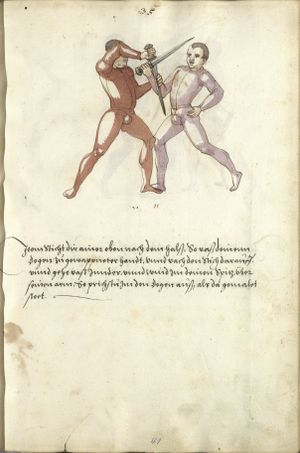 35
Item Sticht dir ainer oben nach dem halß. So vaß deinenn
Degen In gewappneter handt, vnnd vach den Stich darauff
vnnd gehe vast vnnd wind Im deinen Spitz über
seinen arm. So prichstu Im den Degen auß, als da gemalet
steet.
41